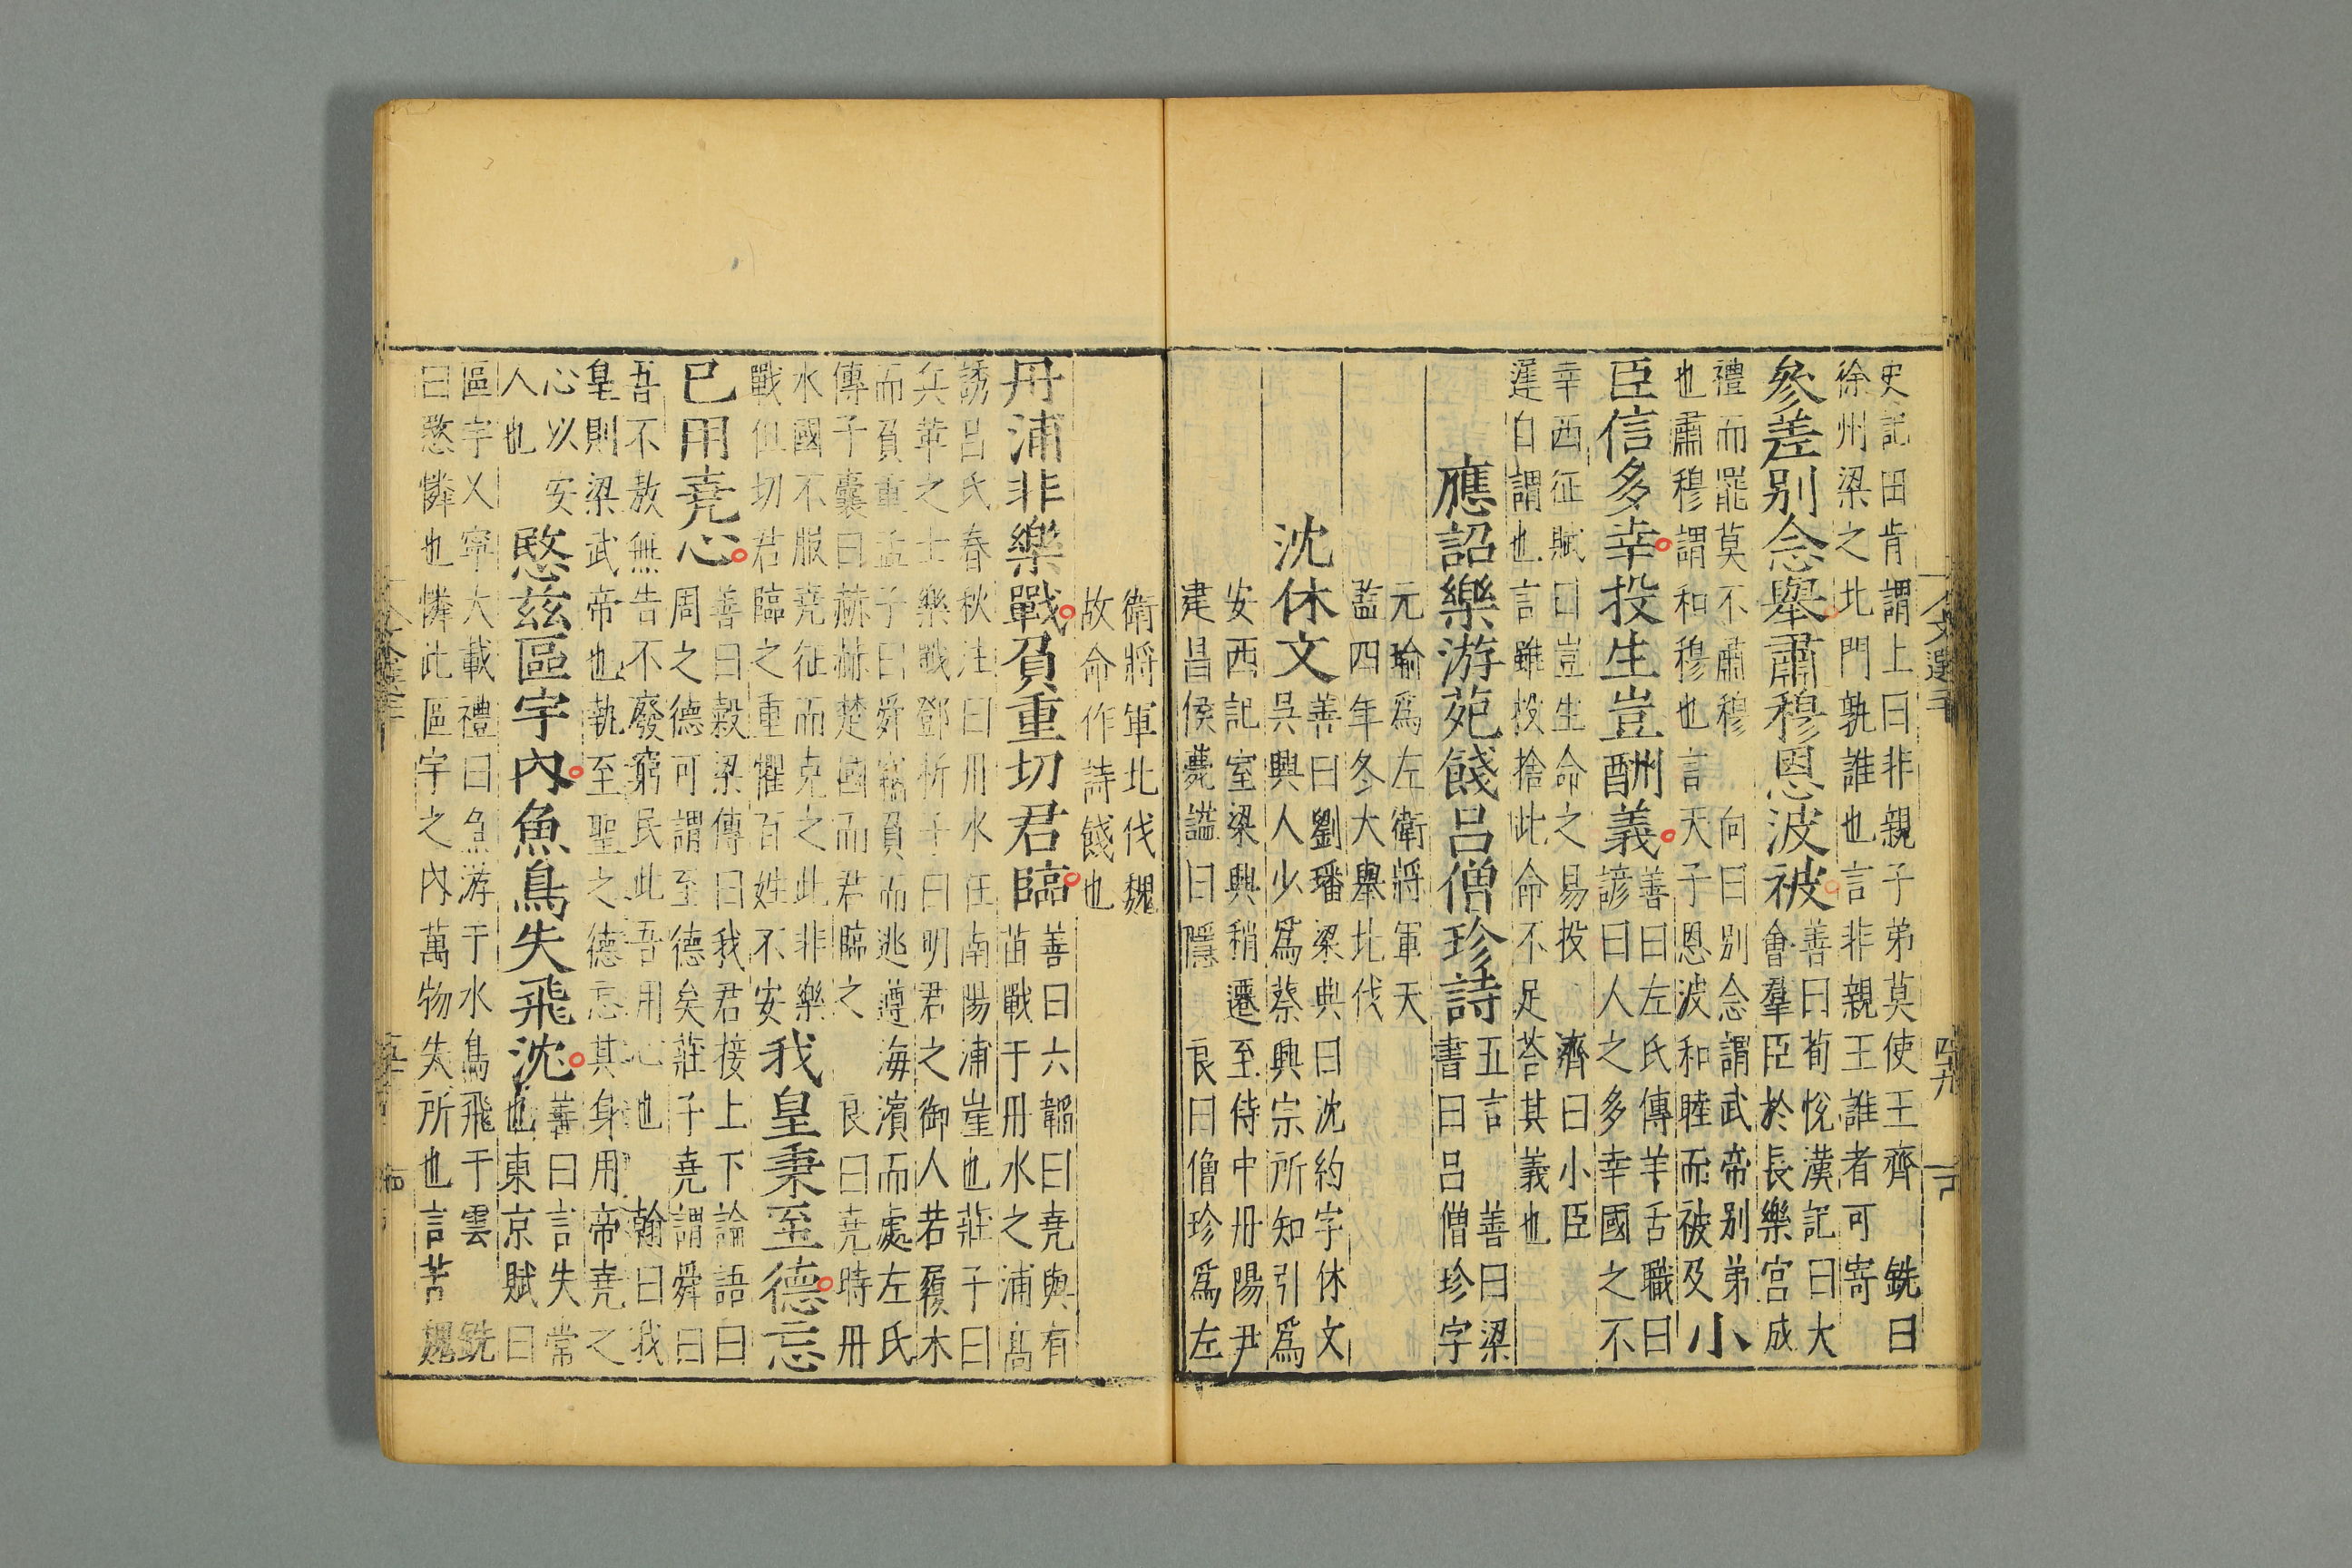 史記田肯謂上曰非親子弟莫使王齊　銑曰
徐州梁之北門孰誰也言非親王誰者可寄
參差別念舉肅穆恩波被
善曰荀悅漢記曰大
會羣臣於長樂宮成
禮而罷莫不肅穆　向曰別念謂武帝別弟
也肅穆謂和穆也言天子恩波和睦而被及
小
臣信多幸投生豈酬義
善曰左氏傳羊舌職曰
諺曰人之多幸國之不
幸西征賦曰豈生命之易投　濟曰小臣
遲自謂也言雖投捨此命不足荅其義也
應詔樂游苑餞呂僧珍詩
五言　善曰梁
書曰呂僧珍字
元瑜爲左衛將軍天
監四年冬大舉北伐
沈休文
善曰劉璠梁典曰沈約字休文
吳興人少爲蔡興宗所知引爲
安西記室梁興稍遷至侍中丹陽尹
建昌侯薨謚曰隱　良曰僧珍爲左
文選二十　四九
衛將軍北伐魏
故命作詩餞也
丹浦非樂戰負重切君臨
善曰六韜曰堯與有
苗戰于丹水之浦高
誘呂氏春秋注曰丹水在南陽浦崖也莊子曰
兵革之士樂戰鄧析子曰明君之御人若履木
而負重孟子曰舜竊負而逃遵海濱而處左氏
傳子囊曰赫赫楚國而君臨之　良曰堯時丹
水國不服堯征而克之此非樂
戰但切君臨之重懼百姓不安
我皇秉至德忘
已用堯心
善曰穀梁傳曰我君接上下論語曰
周之德可謂至德矣莊子堯謂舜曰
吾不敖無告不廢窮民此吾用心也　翰曰我
皇則梁武帝也執至聖之德忘其身用帝堯之
心以安
人也
愍茲區宇內魚鳥失飛沈
善曰言失常
也東京賦曰
區宇乂寧大載禮曰魚游于水鳥飛于雲　銑
曰愍憐也憐此區宇之內萬物失所也言苦魏